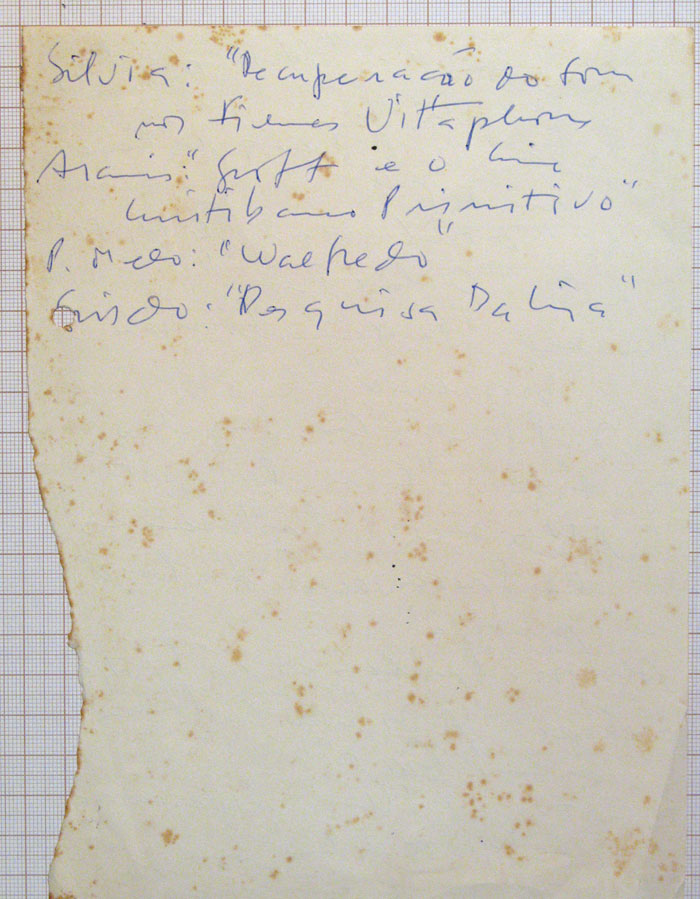 Silvia: "Recuperação do Som
nos Filmes Vittaphone
Aramis: "Groff e o Cine
Curitibano Primitivo"
P. Melo: "Walfredo"
"Pesquisa